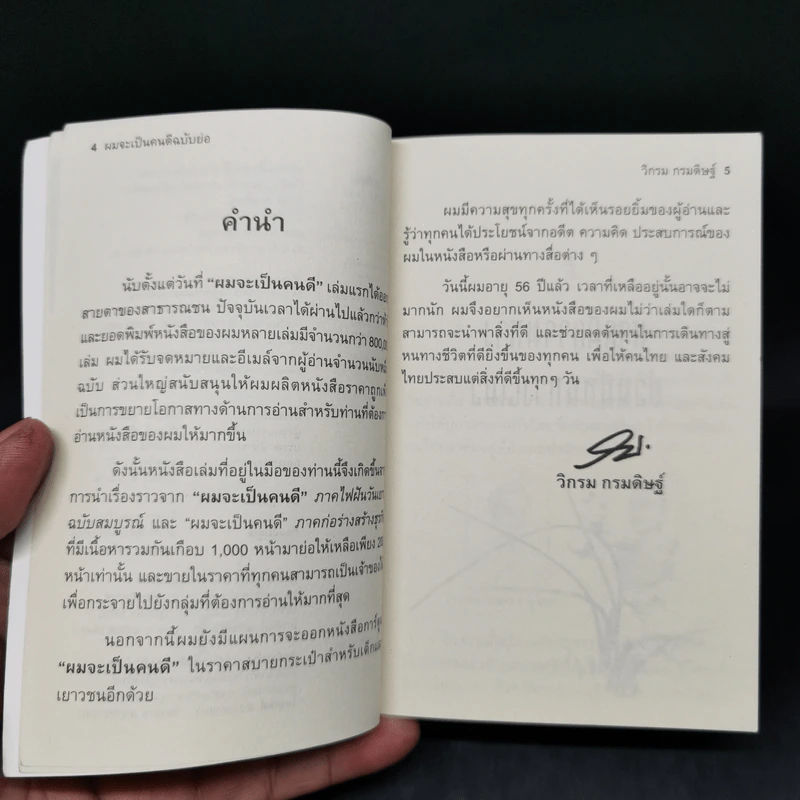 4 ผมจะเป็นคนดีฉบับย่อ
คำนำ
นับตั้งแต่วันที่ “ผมจะเป็นคนดี” เล่มแรกได้ออก
สายตาของสาธารณชน ปัจจุบันเวลาได้ผ่านไปแล้วกว่า
และยอดพิมพ์หนังสือของผมหลายเล่มมีจำนวนกว่า
เล่ม ผมได้รับจดหมายและอีเมล์จากผู้อ่านจำนวนนับ
ฉบับ ส่วนใหญ่สนับสนุนให้ผมผลิตหนังสือราคาถูก
เป็นการขยายโอกาสทางด้านการอ่านสำหรับท่านที่
อ่านหนังสือของผมให้มากขึ้น
ดังนั้นหนังสือเล่มที่อยู่ในมือของท่านนี้จึงเกิดขึ้น
การนำเรื่องราวจาก “ผมจะเป็นคนดี” ภาคไฟฝัน
ฉบับสมบูรณ์ และ “ผมจะเป็นคนดี” ภาคก่อร่าง
ที่มีเนื้อหารวมกันเกือบ 1,000 หน้ามาย่อให้เหลือเพียง
หน้าเท่านั้น และขายในราคาที่ทุกคนสามารถเป็น
เพื่อกระจายไปยังกลุ่มที่ต้องการอ่านให้มากที่สุด
นอกจากนี้ผมยังมีแผนการจะออกหนังสือ
“ผมจะเป็นคนดี” ในราคาสบายกระเป๋าสำหรับ
เยาวชนอีกด้วย
วิกรม กรมดิษฐ์ 5
ผมมีความสุขทุกครั้งที่ได้เห็นรอยยิ้มของผู้อ่านและ
รู้ว่าทุกคนได้ประโยชน์จากอดีต ความคิด ประสบการณ์ของ
ผมในหนังสือหรือผ่านทางสื่อต่าง ๆ
วันนี้ผมอายุ 56 ปีแล้ว เวลาที่เหลืออยู่นั้นอาจจะไม่
มากนัก ผมจึงอยากเห็นหนังสือของผมไม่ว่าเล่มใดก็ตาม
สามารถจะนำพาสิ่งที่ดี และช่วยลดต้นทุนในการเดินทางสู่
หนทางชีวิตที่ดียิ่งขึ้นของทุกคน เพื่อให้คนไทย และสังคม
ไทยประสบแต่สิ่งที่ดีขึ้นทุกๆ วัน
วิกรม กรมดิษฐ์